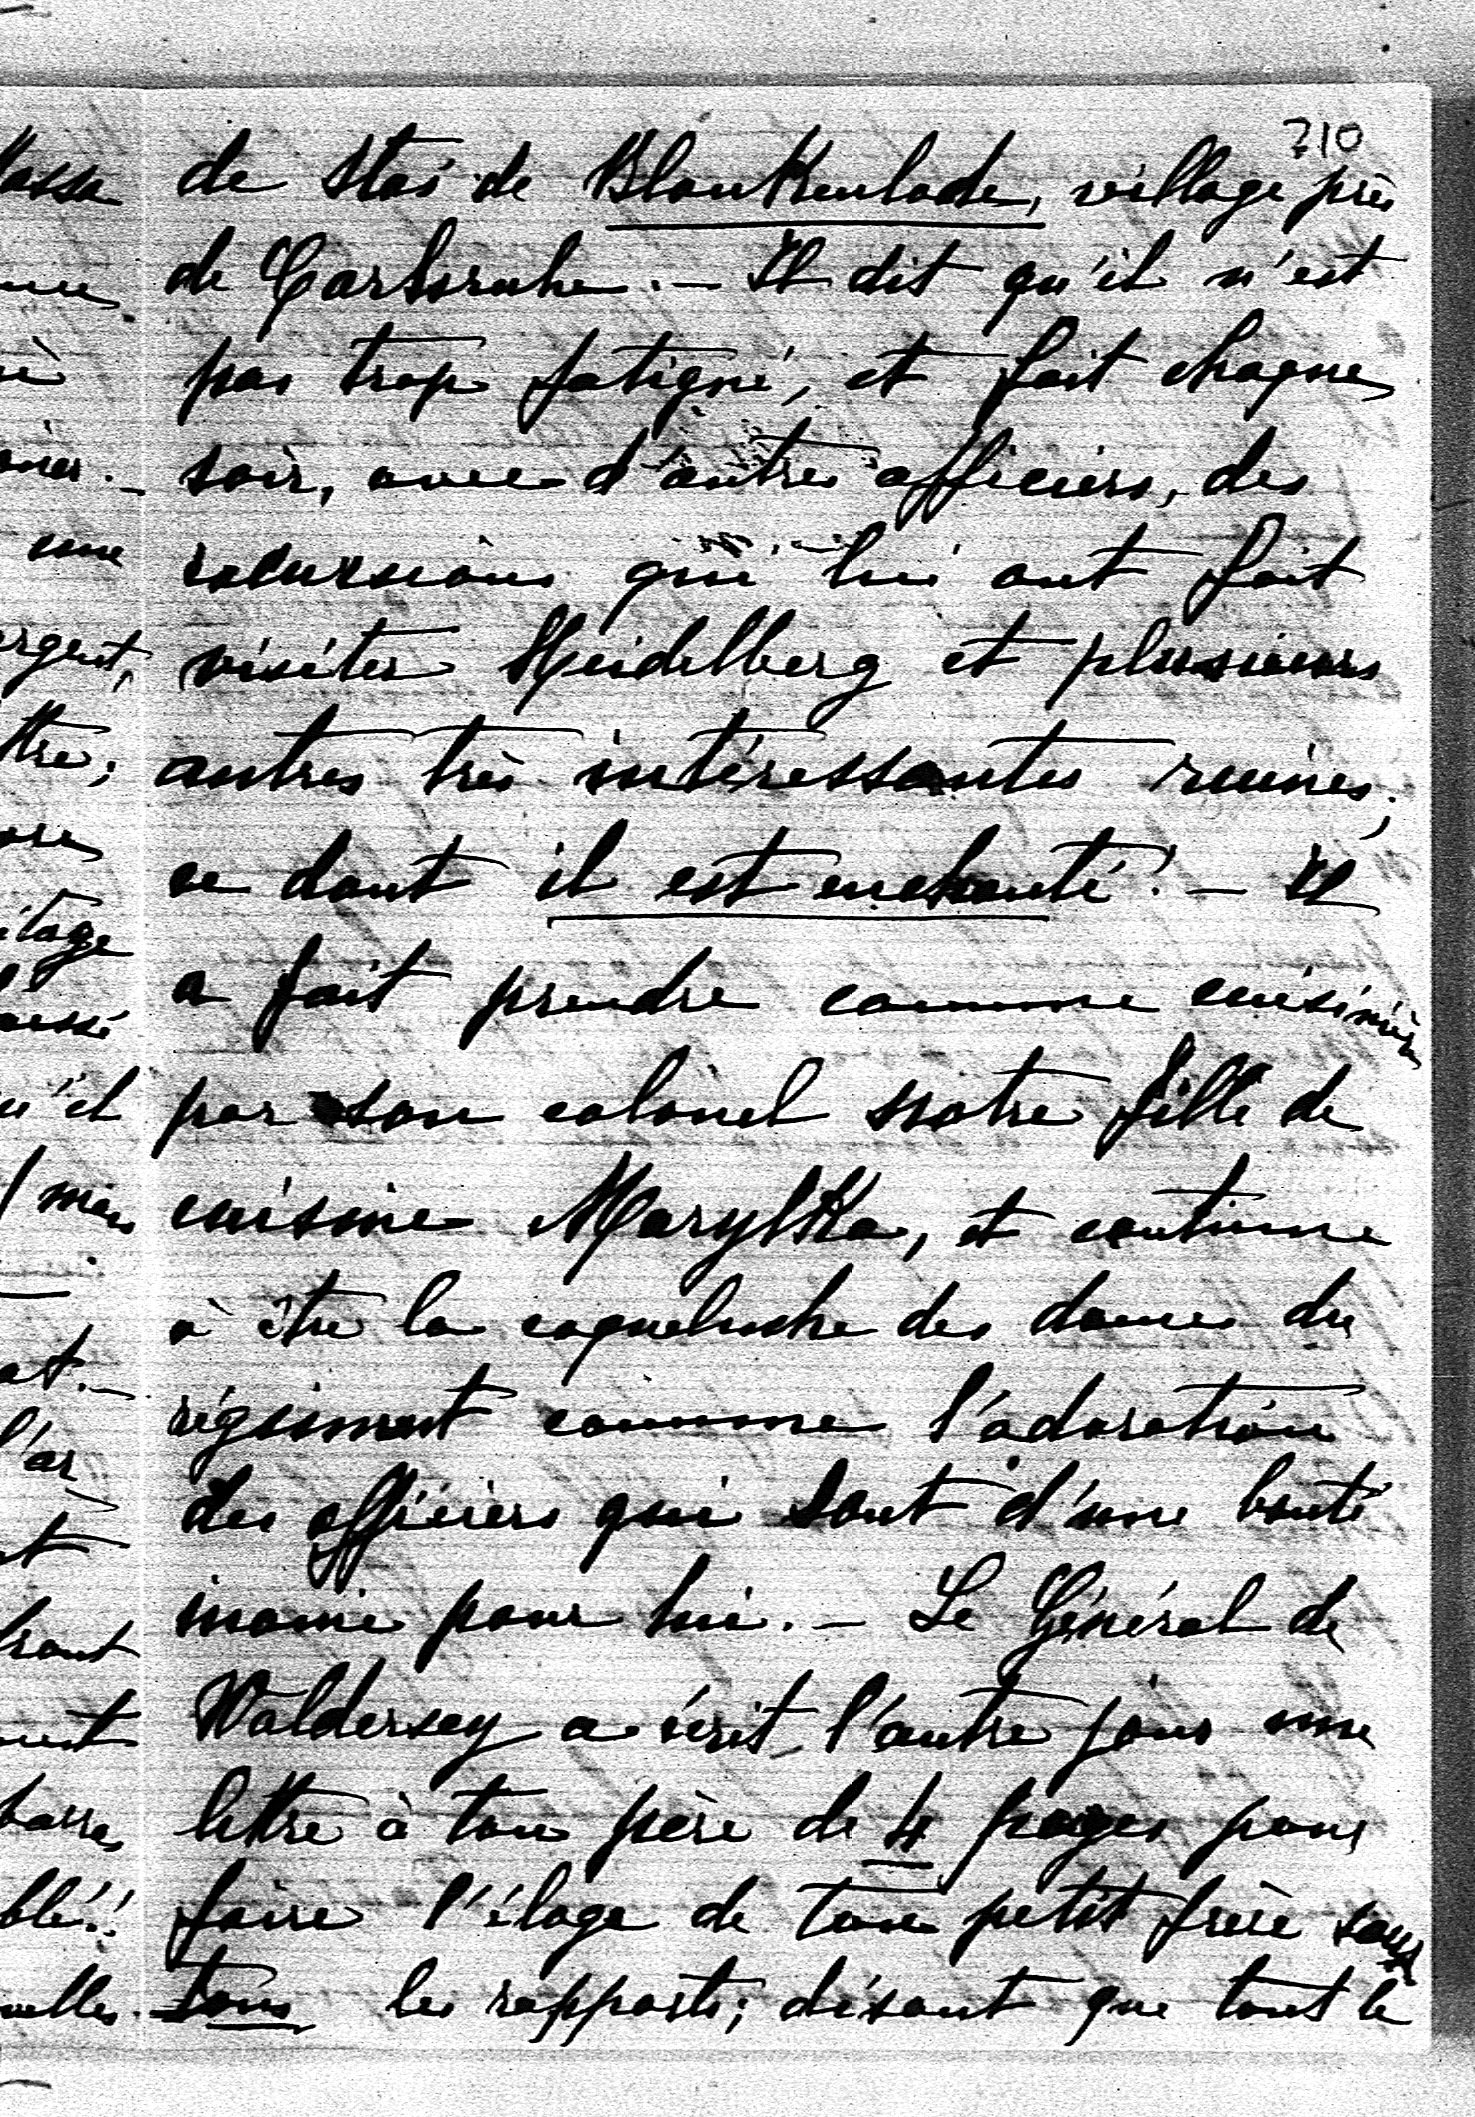 710
de Stas de Blankenlode, village près
de Carlsruhe. — Il dit qu'il n'est
pas trop fatigué, et fait chaque
soir, avec d'autres officiers, des
excursions qui lui ont fait
visiter Heidelberg et plusieurs
autres très intéressantes ruines,
ce dont il est enchanté! — Il
a fait prendre comme cuisinière
par son colonel notre fille de
cuisine Marylka, et continue
à être la coqueluche des dames du
régiment comme l'adoration
des officiers qui sont d'une bonté
inouïe pour lui. — Le Général de
Waldersey a écrit l'autre jour une
lettre à ton père de 4 pages pour
faire l'éloge de ton petit frère sous
tous les rapports; disant que tout le